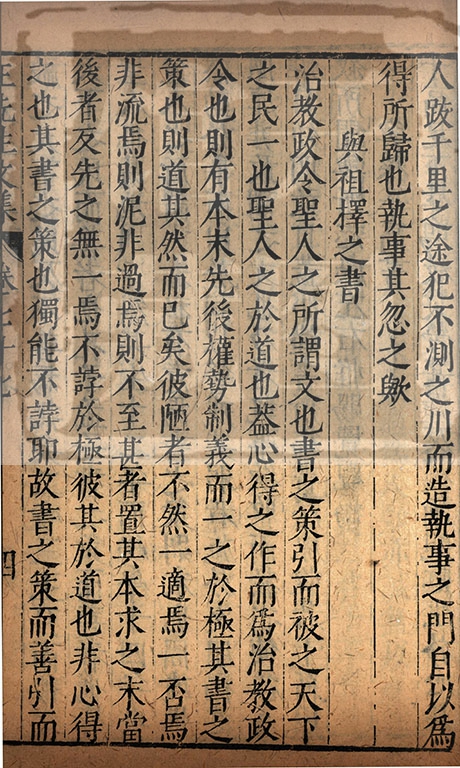 人跋千里之途犯不測之川而造執事之門自以爲
得所歸也執事其忽之歟
與祖擇之書
治教政令聖人之所謂文也書之策引而被之天下
之民一也聖人之於道也葢心得之作而爲治教政
令也則有本末先後權勢制義而一之於極其書之
策也則道其然而已矣彼陋者不然一適焉一否焉
非流焉則泥非過焉則不至甚者置其本求之末當
後者反先之無一焉不誖於極彼其於道也非心得
之也其書之策也獨能不誖耶故書之策而善引而
王先生文集 卷七十七 四